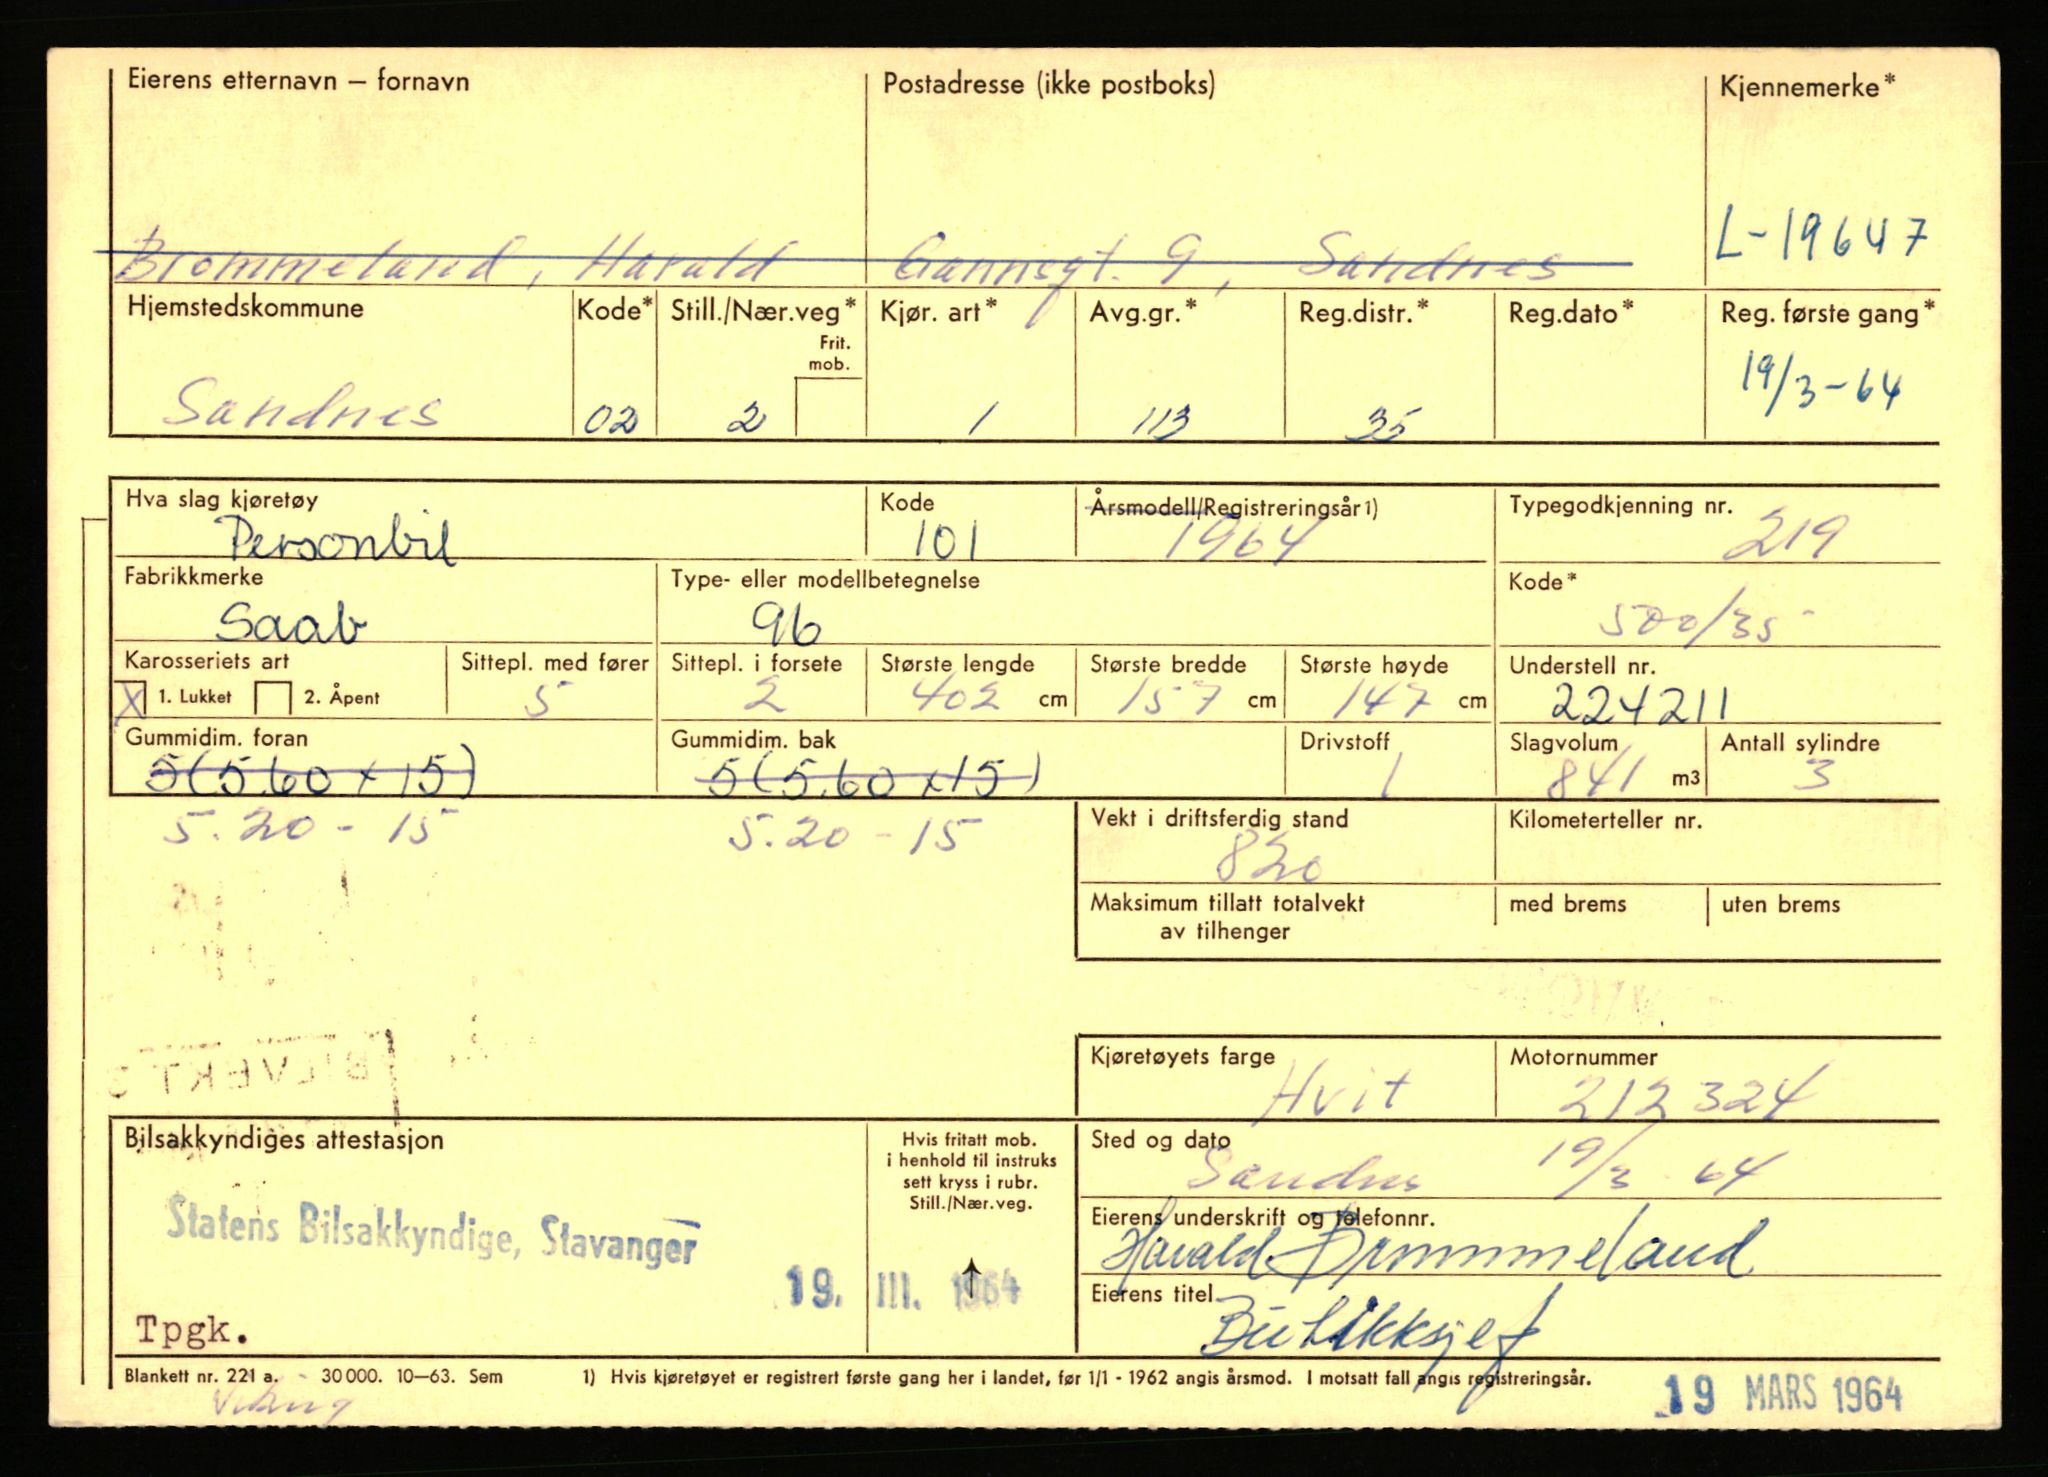 Eierens etternavn — fornavn
Postadresse (ikke postboks)
Kjennemerke*
Brommeland, Harald
Gannsgt. 9, Sandnes
L-19647
Hjemstedskommune
Kode*
Still./Nær.veg*
Frit. mob.
Kjør. art*
Avg.gr.*
Reg.distr.*
Reg.dato*
Reg. første gang*
Sandnes
02
2
1
113
35
19/3-64
Hva slag kjøretøy
Kode
Årsmodell/Registreringsår 1)
Typegodkjenning nr.
Personbil
101
1964
219
Fabrikkmerke
Type- eller modellbetegnelse
Kode*
Saab
96
500/35
Karosseriets art
Sittepl. med fører
Sittepl. i forsete
Største lengde
Største bredde
Største høyde
Understell nr.
X 1. Lukket 2. Åpent
5
2
402 cm
157 cm
147 cm
224211
Gummidim. foran
Gummidim. bak
Drivstoff
Slagvolum
Antall sylindre
5(5.60 x 15)
5(5.60 x 15)
1
841 m3
3
5.20 - 15
5.20 - 15
Vekt i driftsferdig stand
Kilometerteller nr.
820
Maksimum tillatt totalvekt
av tilhenger
med brems
uten brems
BILVERKT
Kjøretøyets farge
Motornummer
Hvit
212324
Bilsakkyndiges attestasjon
Hvis fritatt mob.
i henhold til instruks
sett kryss i rubr.
Still./Nær.veg.
Sted og dato
Sandnes 19/3 64
Statens Bilsakkyndige, Stavanger
Eierens underskrift og telefonnr.
Harald Brommeland
19. III. 1964
Eierens titel
Butikksjef
Tpgk.
Blankett nr. 221 a. 30 000. 10—63. Sem
1) Hvis kjøretøyet er registrert første gang her i landet, før 1/1 - 1962 angis årsmod. I motsatt fall angis registreringsår.
Viking
19 MARS 1964